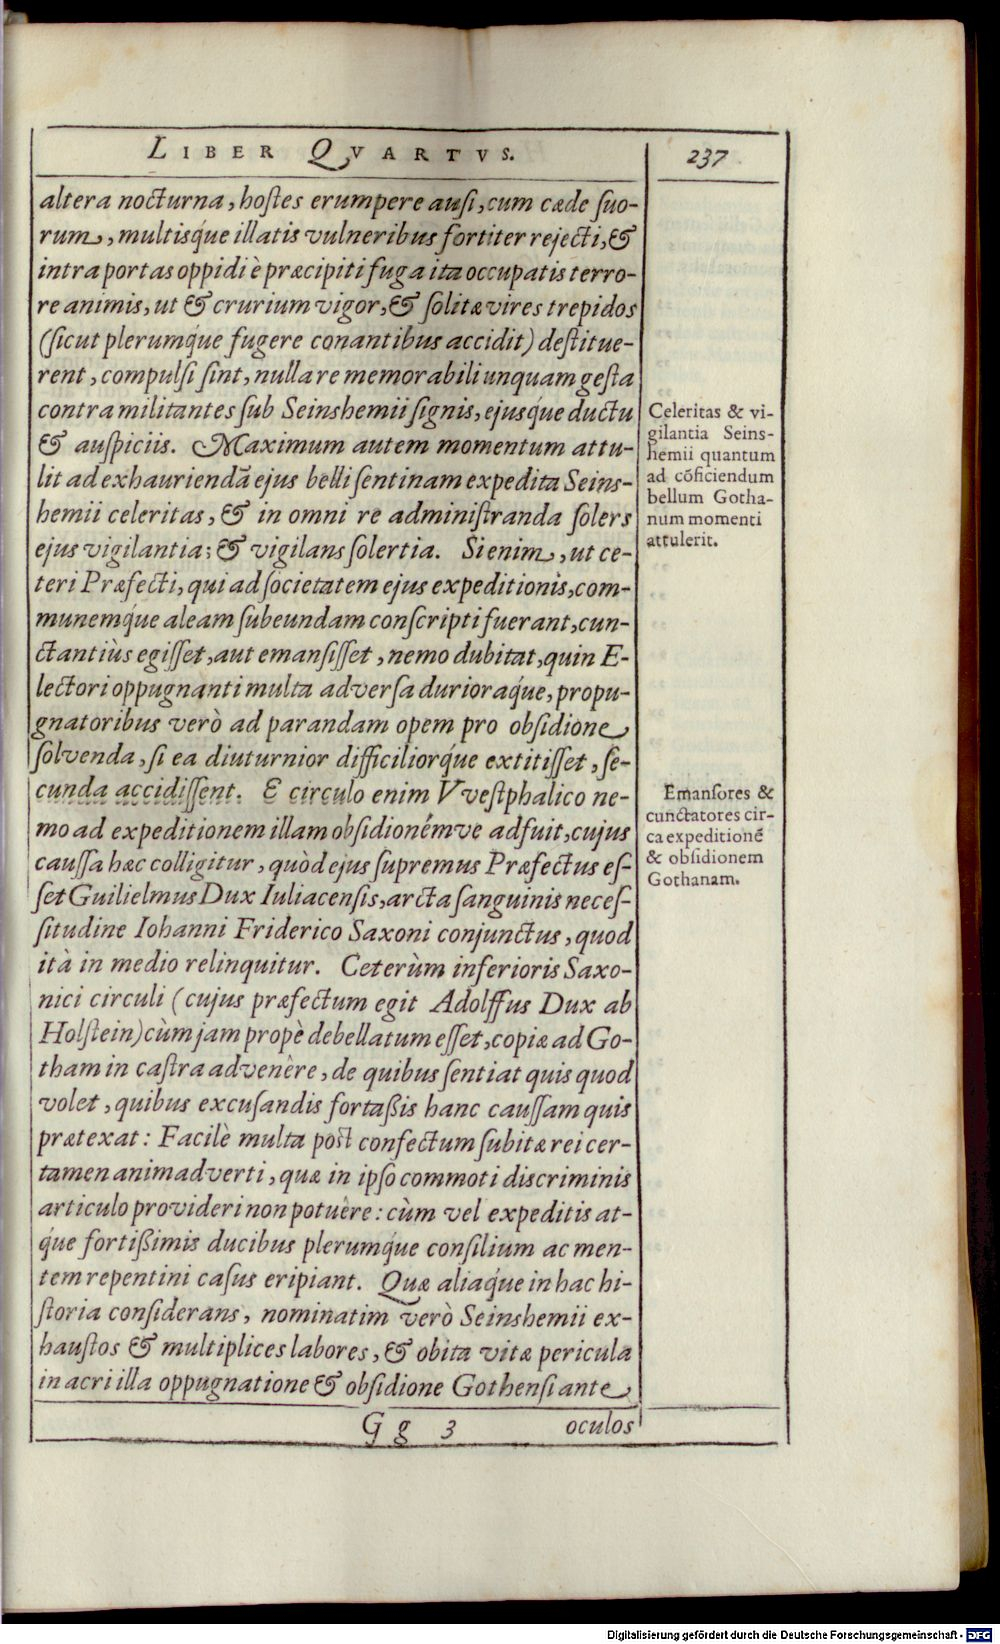 LIBER QVARTVS.
237
altera nocturna, hoſtes erumpere auſi, cum cæde ſuo-
rum, multisq́ue illatis vulneribus fortiter rejecti, &
intra portas oppidi è præcipiti fuga ita occupatis terro-
re animis, ut & crurium vigor, & ſolitæ vires trepidos
(ſicut plerumq́ue fugere conantibus accidit) deſtitue-
rent, compulſi ſint, nulla re memorabili unquam geſta
contra militantes ſub Seinshemii ſignis, ejusq́ue ductu
& auſpiciis. Maximum autem momentum attu-
lit ad exhauriendã ejus belli ſentinam expedita Seins-
hemii celeritas, & in omni re adminiſtranda ſolers
ejus vigilantia; & vigilans ſolertia. Si enim, ut ce-
teri Præfecti, qui ad ſocietatem ejus expeditionis, com-
munemq́ue aleam ſubeundam conſcripti fuerant, cun-
ctantiùs egiſſet, aut emanſiſſet, nemo dubitat, quin E-
lectori oppugnanti multa adverſa durioraq́ue, propu-
gnatoribus verò ad parandam opem pro obſidione
ſolvenda, ſi ea diuturnior difficiliorq́ue extitiſſet, ſe-
cunda accidiſſent. E circulo enim Vveſtphalico ne-
mo ad expeditionem illam obſidionémve adfuit, cujus
cauſſa hæc colligitur, quòd ejus ſupremus Præfectus eſ-
ſet Guilielmus Dux Iuliacenſis, arcta ſanguinis neceſ-
ſitudine Iohanni Friderico Saxoni conjunctus, quod
ità in medio relinquitur. Ceterùm inferioris Saxo-
nici circuli (cujus præfectum egit Adolffus Dux ab
Holſtein) cùm jam propè debellatum eſſet, copiæ ad Go-
tham in caſtra advenêre, de quibus ſentiat quis quod
volet, quibus excuſandis fortaßis hanc cauſſam quis
prætexat: Facilè multa poſt confectum ſubitæ rei cer-
tamen animadverti, quæ in ipſo commoti discriminis
articulo provideri non potuêre: cùm vel expeditis at-
q́ue fortißimis ducibus plerumq́ue conſilium ac men-
tem repentini caſus eripiant. Quæ aliaq́ue in hac hi-
ſtoria conſiderans, nominatim verò Seinshemii ex-
hauſtos & multiplices labores, & obita vitæ pericula
in acri illa oppugnatione & obſidione Gothenſi ante
Gg 3
oculos
Celeritas & vi-
gilantia Seins-
hemii quantum
ad cõficiendum
bellum Gotha-
num momenti
attulerit.
Emanſores &
cunctatores cir-
ca expeditionẽ
& obſidionem
Gothanam.
Digitalisierung gefördert durch die Deutsche Forschungsgemeinschaft - DFG